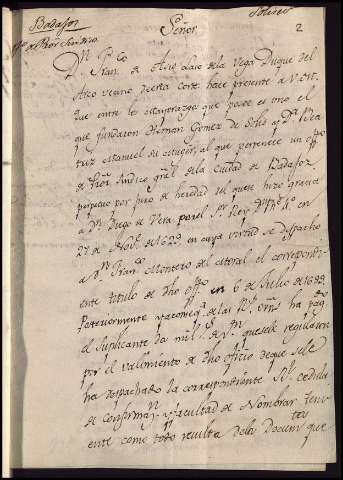 Badajoz
Señor
2
Dn. Franco. de laso de la Vega Duque del
Arco vecino de esta Corte hace presente a V.M.
que entre los Mayorazgos que posee es uno el
que fundaron Hernan Gomez de Solis y Da. Bea
triz Manuel su muger, al que pertenece un offo.
de Rexor. sindico gral. de la Ciudad de Badajoz
perpetuo por juro de heredad su quese hizo gracia
a Dn. Diego de Vera por el Sr. Rey Dn. Phe. 4o. en
27 de Nove. de 1629. en cuya virtud se despacho
a Dn. Franco. Montero del Moral el correspondi
ente titulo de dho offo. en 6 de Julio de 1689.
Posteriormente y a conseqa. de las Rs. ha pagdo.
el suplicante mil Rs. de Vn. que se le regularon
por el valimiento de dho oficio de que se le
ha despachado la correspondiente Rl. cedula
de confirmazn. y facultad de Nombrar teni
ente como todo resulta de los Documtos. que